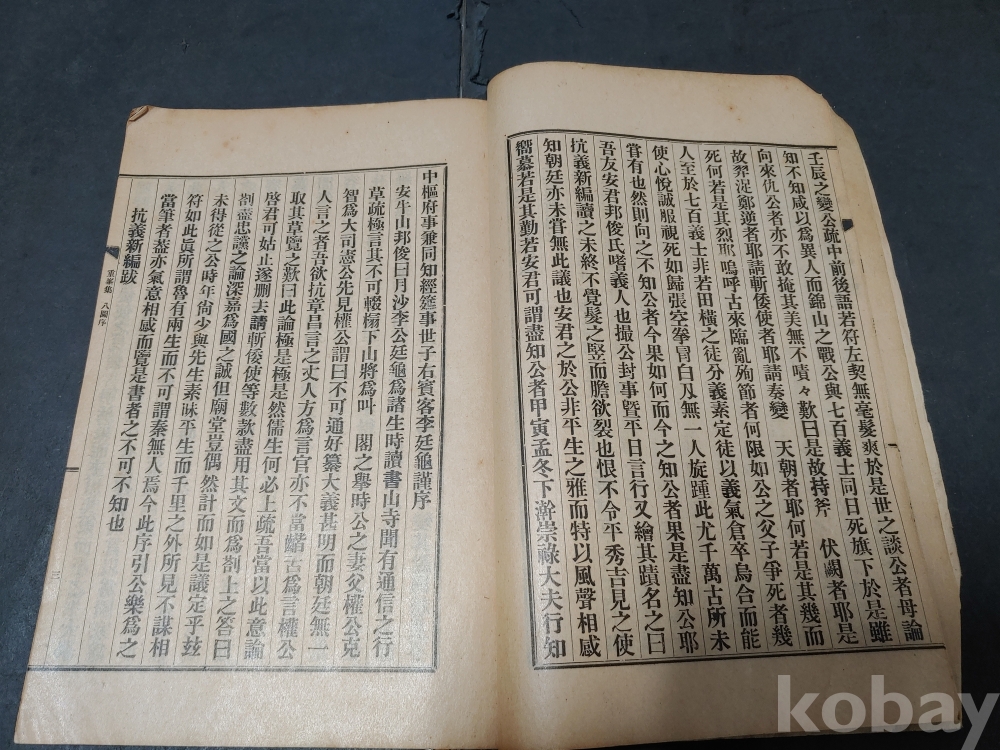 壬辰之變公疏中前後語若符左契無毫髮爽於是世之談公者毋論
知不知咸以爲異人而錦山之戰公與七百義士同日死旗下於是雖
向來仇公者亦不敢掩其美無不嘖々歎曰是故持斧 伏闕者耶是
故羿浞鄭逆者耶請斬倭使者耶請奏變 天朝者耶何若是其幾而
死何若是其烈耶嗚呼古來臨亂殉節者何限如公之父子爭死者幾
人至於七百義士非若田橫之徒分義素定徒以義氣倉卒烏合而能
使心悅誠服視死如歸張空拳冒白刃無一人旋踵此尤千萬古所未
嘗有也然則向之不知公者今果如何而今之知公者果是盡知公耶
吾友安君邦俊氏嗜義人也撮公封事曁平日言行又繪其蹟名之曰
抗義新編讀之未終不覺髮之竪而膽欲裂也恨不令平秀吉見之使
知朝廷亦未嘗無此議也安君之於公非平生之雅而特以風聲相感
嚮慕若是其勤若安君可謂盡知公者甲寅孟冬下澣崇祿大夫行知
中樞府事兼同知經筵事世子右賓客李廷龜謹序
安牛山邦俊曰月沙李公廷龜爲諸生時讀書山寺聞有通信之行
草疏極言其不可輟榻下山將爲叫 閤之擧時公之妻父權公克
智爲大司憲公先見權公謂曰不可通好纂大義甚明而朝廷無一
人言之者吾欲抗章昌言之丈人方爲言官亦不當齰舌爲言權公
取其草覽之歎曰此論極是極是然儒生何必上疏吾當以此意論
啓君可姑止遂删去請斬倭使等數款盡用其文而爲劄上之答曰
劄意忠讜之論深嘉爲國之誠但廟堂豈偶然計而如是議定乎玆
未得從之公時年尙少與先生素昧平生而千里之外所見不謀相
符如此眞所謂魯有兩生而不可謂秦無人焉今此序引公樂爲之
當筆者蓋亦氣意相感而覽是書者之不可不知也
抗義新編跋
重峯集 八圖序
三
kobay